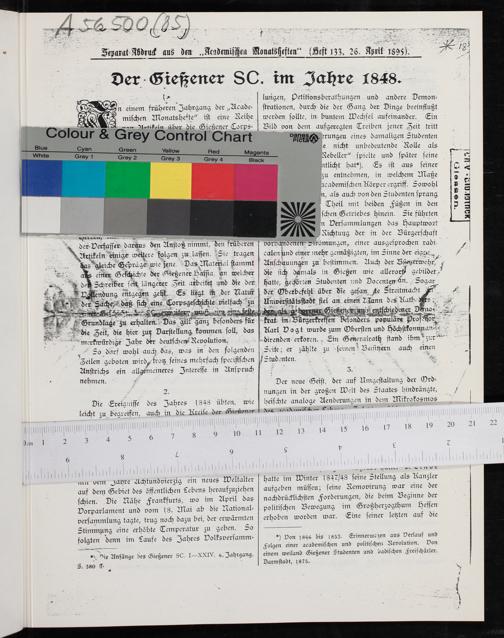 A 56500 (85)
* 18
Separat-Abdruck aus den „Academischen Monatsheften“ (Heft 133, 26. April 1895).
Der Gießener SC. im Jahre 1848.
In einem früheren Jahrgang der „Acade-
mischen Monatshefte“ ist eine Reihe
von Artikeln über die Gießener Corps-
Colour & Grey Control Chart
Blue Cyan Green Yellow Red Magenta
White Grey 1 Grey 2 Grey 3 Grey 4 Black
der Verfasser daraus den Anstoß nimmt, den früheren
Artikeln einige weitere folgen zu lassen. Sie tragen
das gleiche Gepräge wie jene. Das Material stammt
aus einer Geschichte der Gießener Hassia, an welcher
der Schreiber seit längerer Zeit arbeitet und die der
Vollendung entgegen geht. Es liegt in der Natur
der Sache, daß sich eine Corpsgeschichte vielfach zu
Grundlage zu erhalten. Das gilt ganz besonders für
die Zeit, die hier zur Darstellung kommen soll, das
merkwürdige Jahr der deutschen Revolution.
So darf wohl auch das, was in den folgenden
Zeilen geboten wird, trotz seines mehrfach specifischen
Anstrichs ein allgemeineres Interesse in Anspruch
nehmen.
2.
Die Ereignisse des Jahres 1848 übten, wie
leicht zu begreifen, auch in die Kreise der Gießener
mit dem Jahre Achtundvierzig ein neues Weltalter
auf dem Gebiet des öffentlichen Lebens heraufzuziehen
schien. Die Nähe Frankfurts, wo im April das
Vorparlament und vom 18. Mai ab die National-
versammlung tagte, trug noch dazu bei, der erwärmten
Stimmung eine erhöhte Temperatur zu geben. So
folgten denn im Laufe des Jahres Volksversamm-
*) Die Anfänge des Gießener SC. I.—XXIV. 4. Jahrgang.
S. 380 ff.
lungen, Petitionsberathungen und andere Demon-
strationen, durch die der Gang der Dinge beeinflußt
werden sollte, in buntem Wechsel aufeinander. Ein
Bild von dem aufgeregten Treiben jener Zeit tritt
rungen eines damaligen Studenten
e nicht unbedeutende Rolle als
Rebeller“ spielte und später seine
tlicht hat*). Es ist aus seiner
zu entnehmen, in welchem Maße
academischen Körper ergriff. Sowohl
n, als auch von den Studenten sprang
Theil mit beiden Füßen in den
schen Getriebes hinein. Sie führten
n Versammlungen das Hauptwort
Richtung der in der Bürgerschaft
vorhandenen Strömungen, einer ausgesprochen radi-
calen und einer mehr gemäßigten, im Sinne der eigenen
Anschauungen zu bestimmen. Auch der Bürgerwehr,
die sich damals in Gießen wie allerorts gebildet
hatte, gehörten Studenten und Docenten an. Sogar
der Oberbefehl über die gesamte Streitmacht der
Universitätsstadt fiel an einen Mann des Katheders,
den als geborener Gießener und entschiedener Demo-
krat in Bürgerkreisen besonders populäre Professor
Karl Vogt wurde zum Obersten und Höchstkomman-
direnden erkoren. Ein Generalstab stand ihm zur
Seite; er zählte zu seinen Männern auch einen
Studenten.
3.
Der neue Geist, der auf Umgestaltung der Ord-
nungen in der großen Welt des Staates hindrängte,
heischte analoge Aenderungen in dem Mikrokosmos
hatte im Winter 1847/48 seine Stellung als Kanzler
aufgeben müssen; seine Removirung war eine der
nachdrücklichsten Forderungen, die beim Beginne der
politischen Bewegung im Großherzogthum Hessen
erhoben worden war. Eine seiner letzten auf die
*) Von 1846 bis 1853. Erinnerungen aus Verlauf und
Folgen einer academischen und politischen Revolution. Von
einem weiland Gießener Studenten und badischen Freischärler.
Darmstadt, 1873.
Giessen.